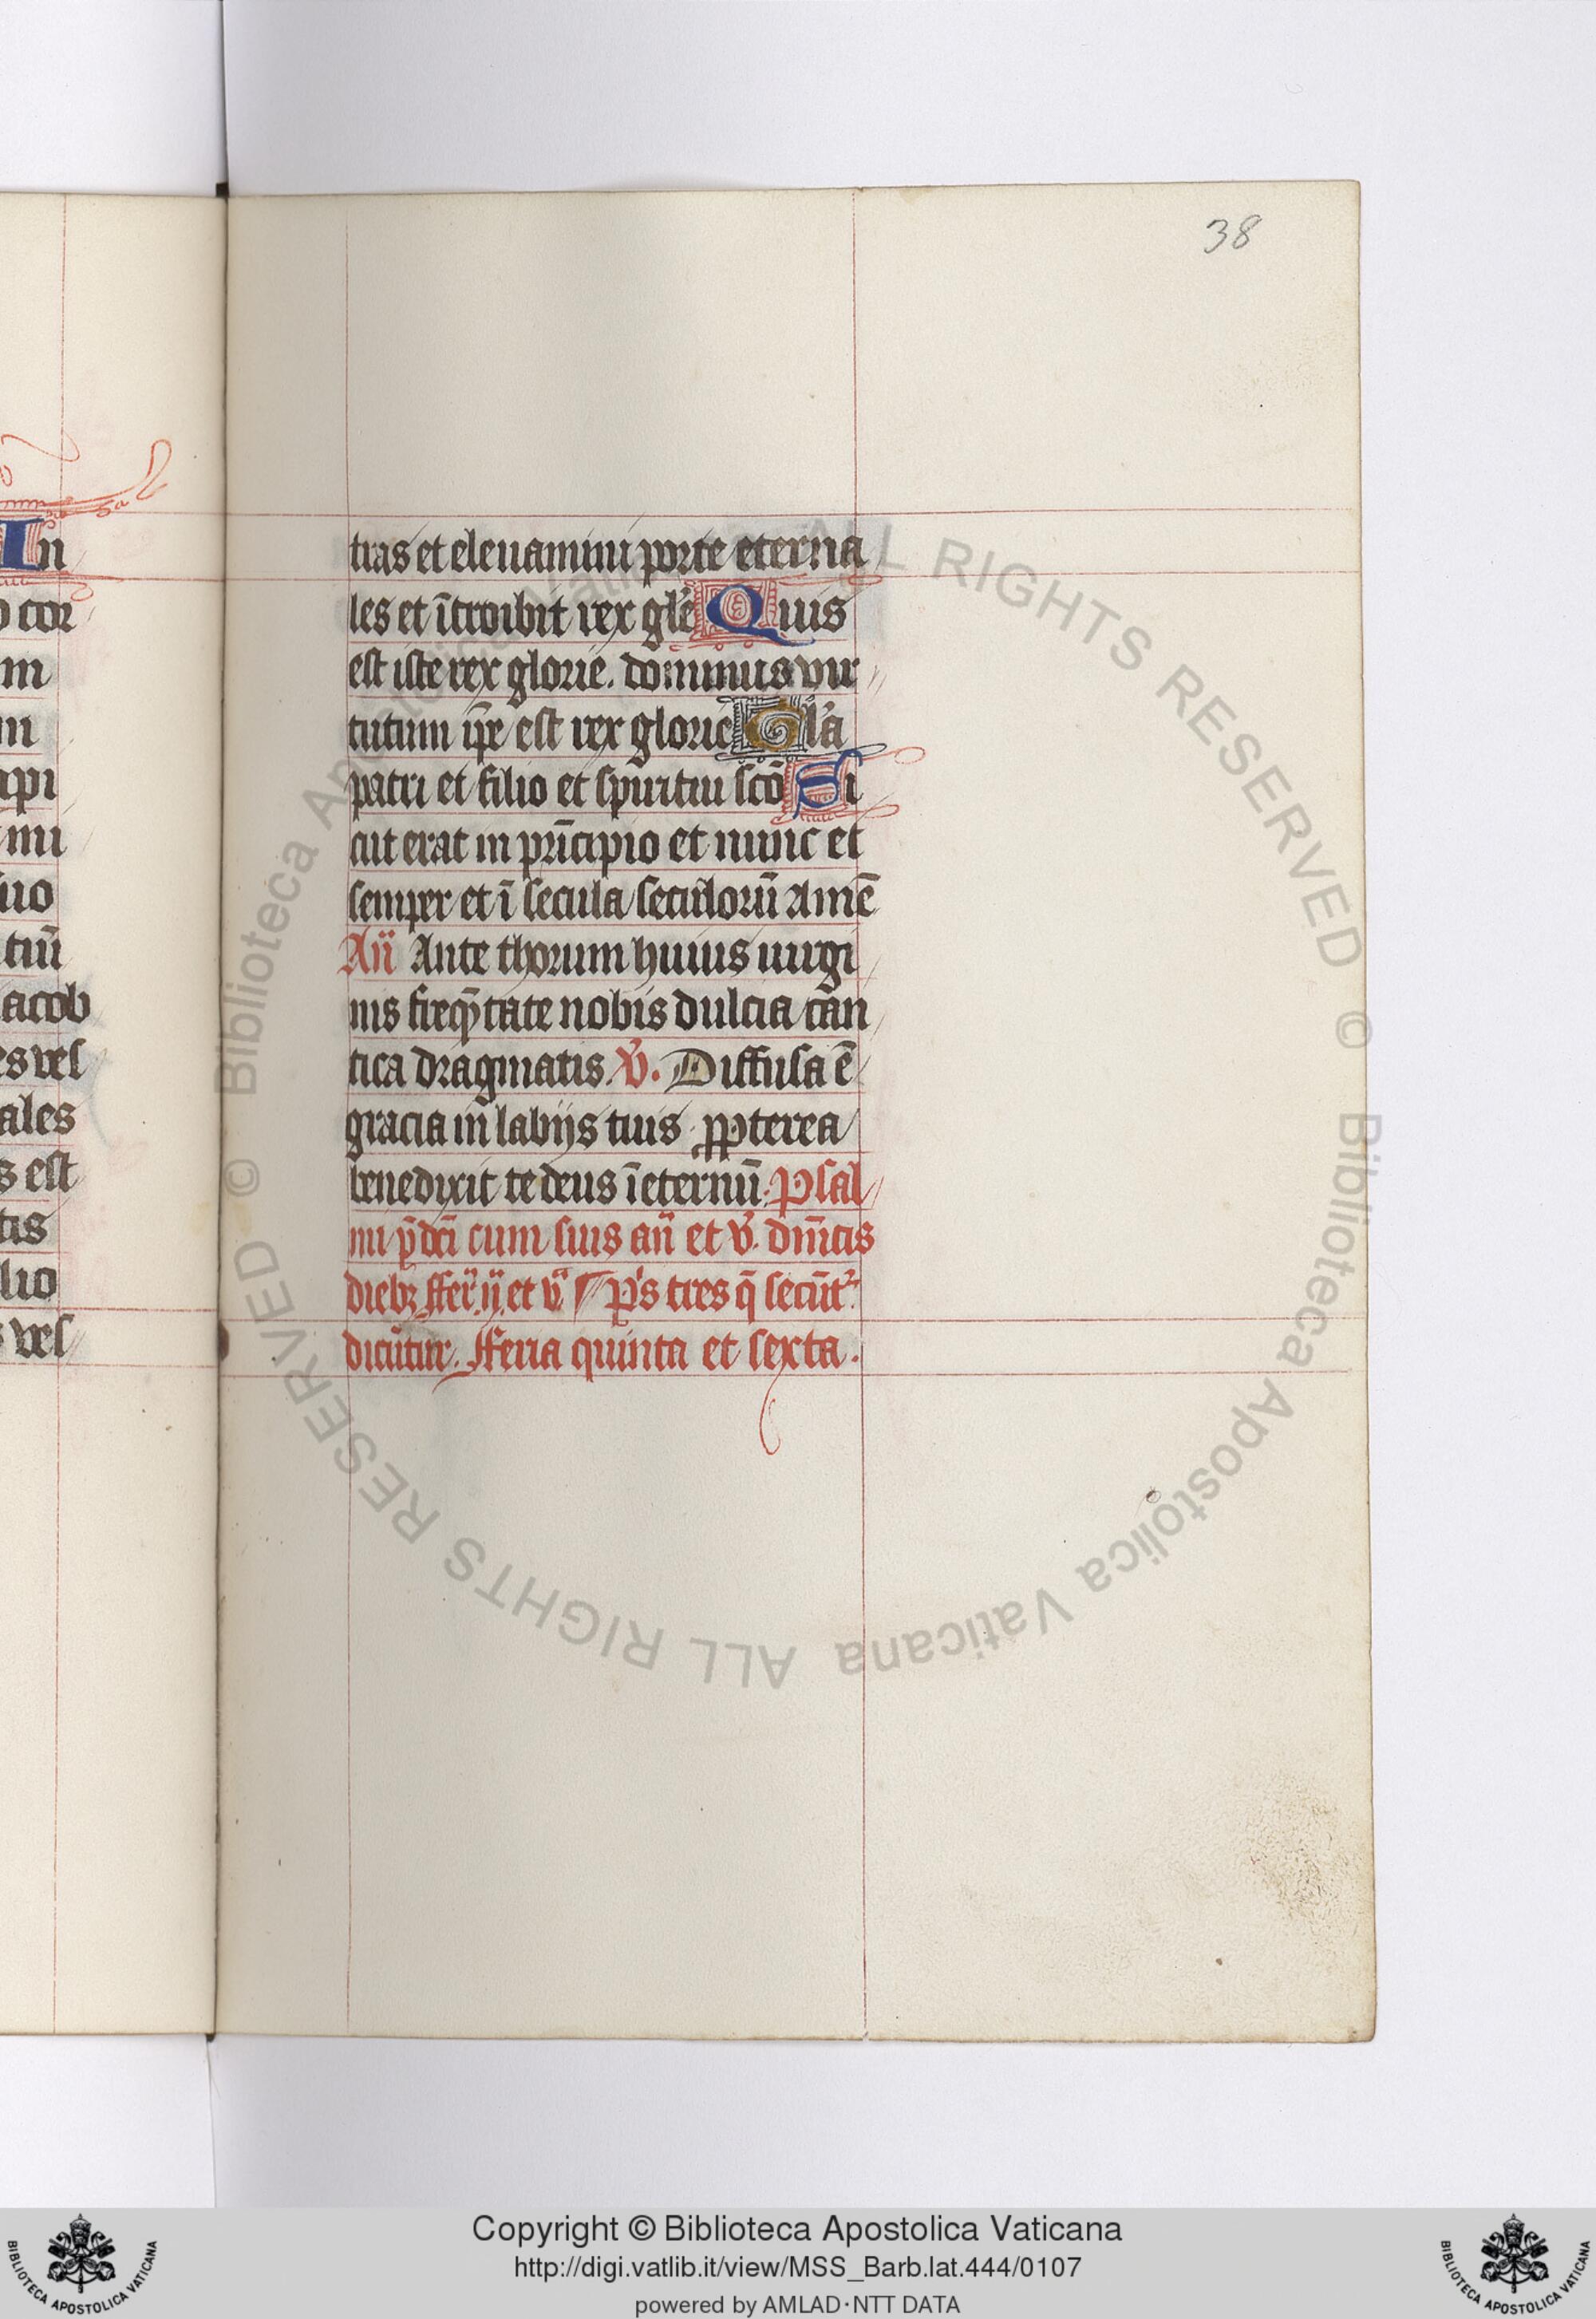 38
In
cor
m
m
api
mi
uo
tiū
acob
es vel
ales
s est
tis
lio
vel
tras et eleuamini porte eterna
les et ītroibit rex gl'e Quis
est iste rex glorie. dominus vir
tutum ip̄e est rex glorie Gl'a
patri et filio et spiritui scō Si
cut erat in prīcipio et nunc et
semper et ī secula seculorū Amē
Añ Ante thorum huius uirgi
nis freq̄tate nobis dulcia can
tica dragmatis. V̓. Diffusa ē
gracia in labijs tuis propterea
benedixit te deus ī eternū. Psal
mi p̄dc̄i cum suis an̄ et v̓. dn̄icis
dieb; ffer̓. ij et v̓ ¶ Ps tres q̄ secūt̓
dicūtur. fferia quinta et sexta.
© Biblioteca Apostolica Vaticana ALL RIGHTS RESERVED © Biblioteca Apostolica Vaticana ALL RIGHTS RESERVED
Copyright © Biblioteca Apostolica Vaticana
http://digi.vatlib.it/view/MSS_Barb.lat.444/0107
powered by AMLAD·NTT DATA
BIBLIOTECA APOSTOLICA VATICANA
BIBLIOTECA APOSTOLICA VATICANA